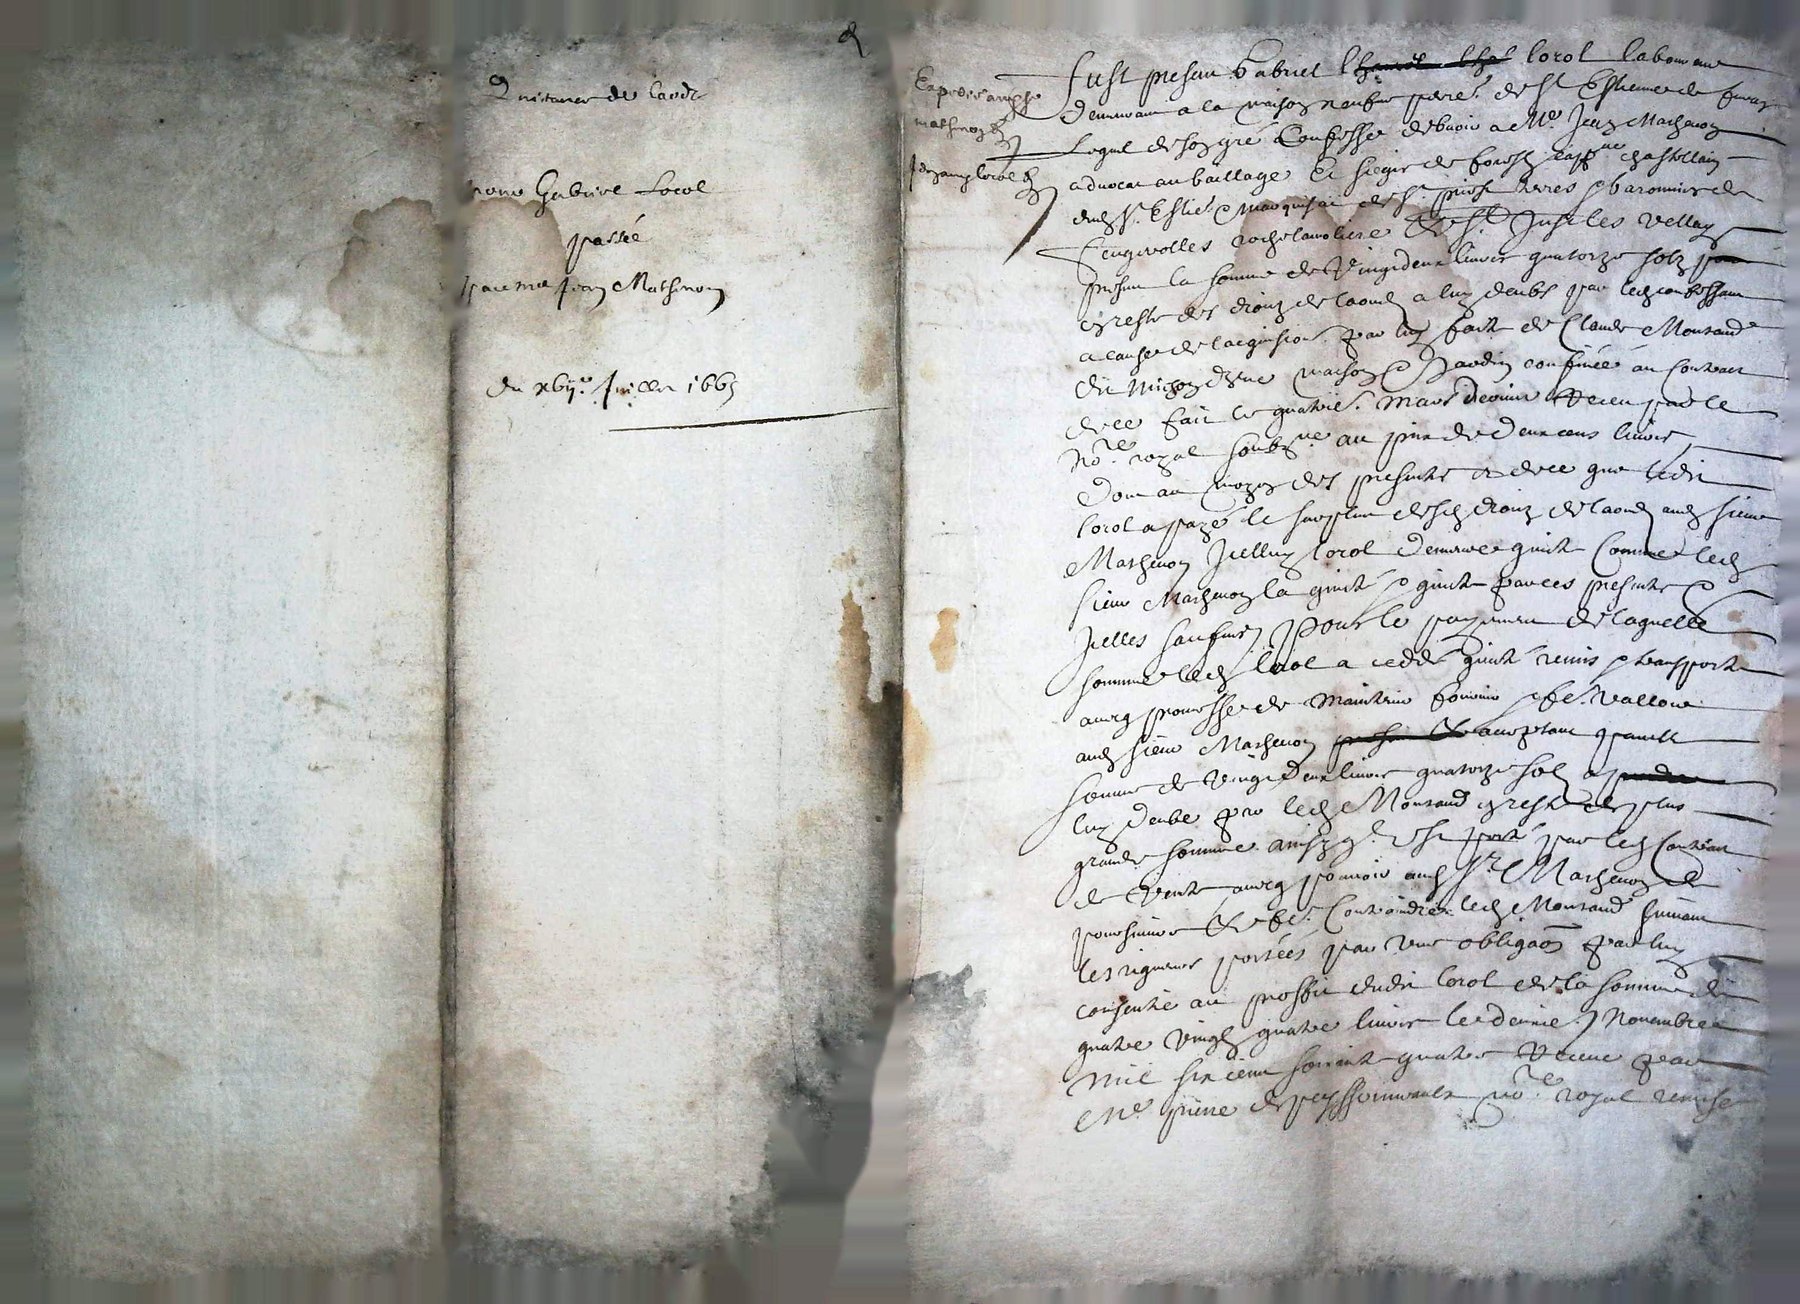 Quittance de laodz
pour Gabriel Lorol
passée
par me Jean Mathevon
du xviije Juillet 1665
Expedié
mathevon
lorol
Fust presen Gabriel lorol laboureur
demeurant a la maison neufve parre. de st Estienne de furan
Lequel de son gré Confesse debvoir a Me Jean Mathevon
advocat au bailliage Et siege de forestz cappne chastellain
dud st. Estie. marquisat de st. priest terres & baronnies de
feugerolles rochelamoliere & st Just les vellay
presen la somme de vingt deux livres quatorze solz
reste des droitz de laodz a luy deubz par led confessant
a cause de lacquision. par luy faite de Claude Montaud
dit une maison & Jardin confinée au Contract
de ce fait le quatrie. Mars dernier Receu par le
nore. royal soubzne au prix de deux cens livres
Dont au moyen des presentes & de ce que ledit
lorol a payé le surplus desd droitz de laodz aud sieur
Mathevon Icelluy lorol demeure quitte Comme led
sieur Mathevon la quitté & quitte par ces presentes &
Jcelles Pour le payement de laquelle
somme led lorol a ceddé quitté remis & transporté
avecq promesse de maintenir fournir & fe. valloir
aud sieur Mathevon acceptant pareille
somme de vingt Deux livres quatorze solz a
luy deube par led Montaud reste de plus
grande somme ainsy q. Est porté par led Contract
de Vente avecq pouvoir aud Sr Mathevon de
poursuivre & fe. Contraindre led Montaud suivant
les rigueurs portées par une obligaon par luy
consentie au proffit dudit lorol de la somme de
quatre vingtz quatre livres le dernie. Novembre
mil six cens soixante quatre Receue par
Me pierre nore. royal